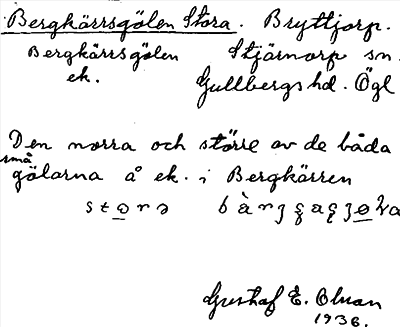 Bergkärrsgölen Stora. Bryttjorp.
Bergkärrsgölen Stjärnorp sn.
ek. Gullbergs hd. Ögl
Den norra och större av de båda
små
gölarna å ek. i Bergkärren
Gustaf E.
1936.